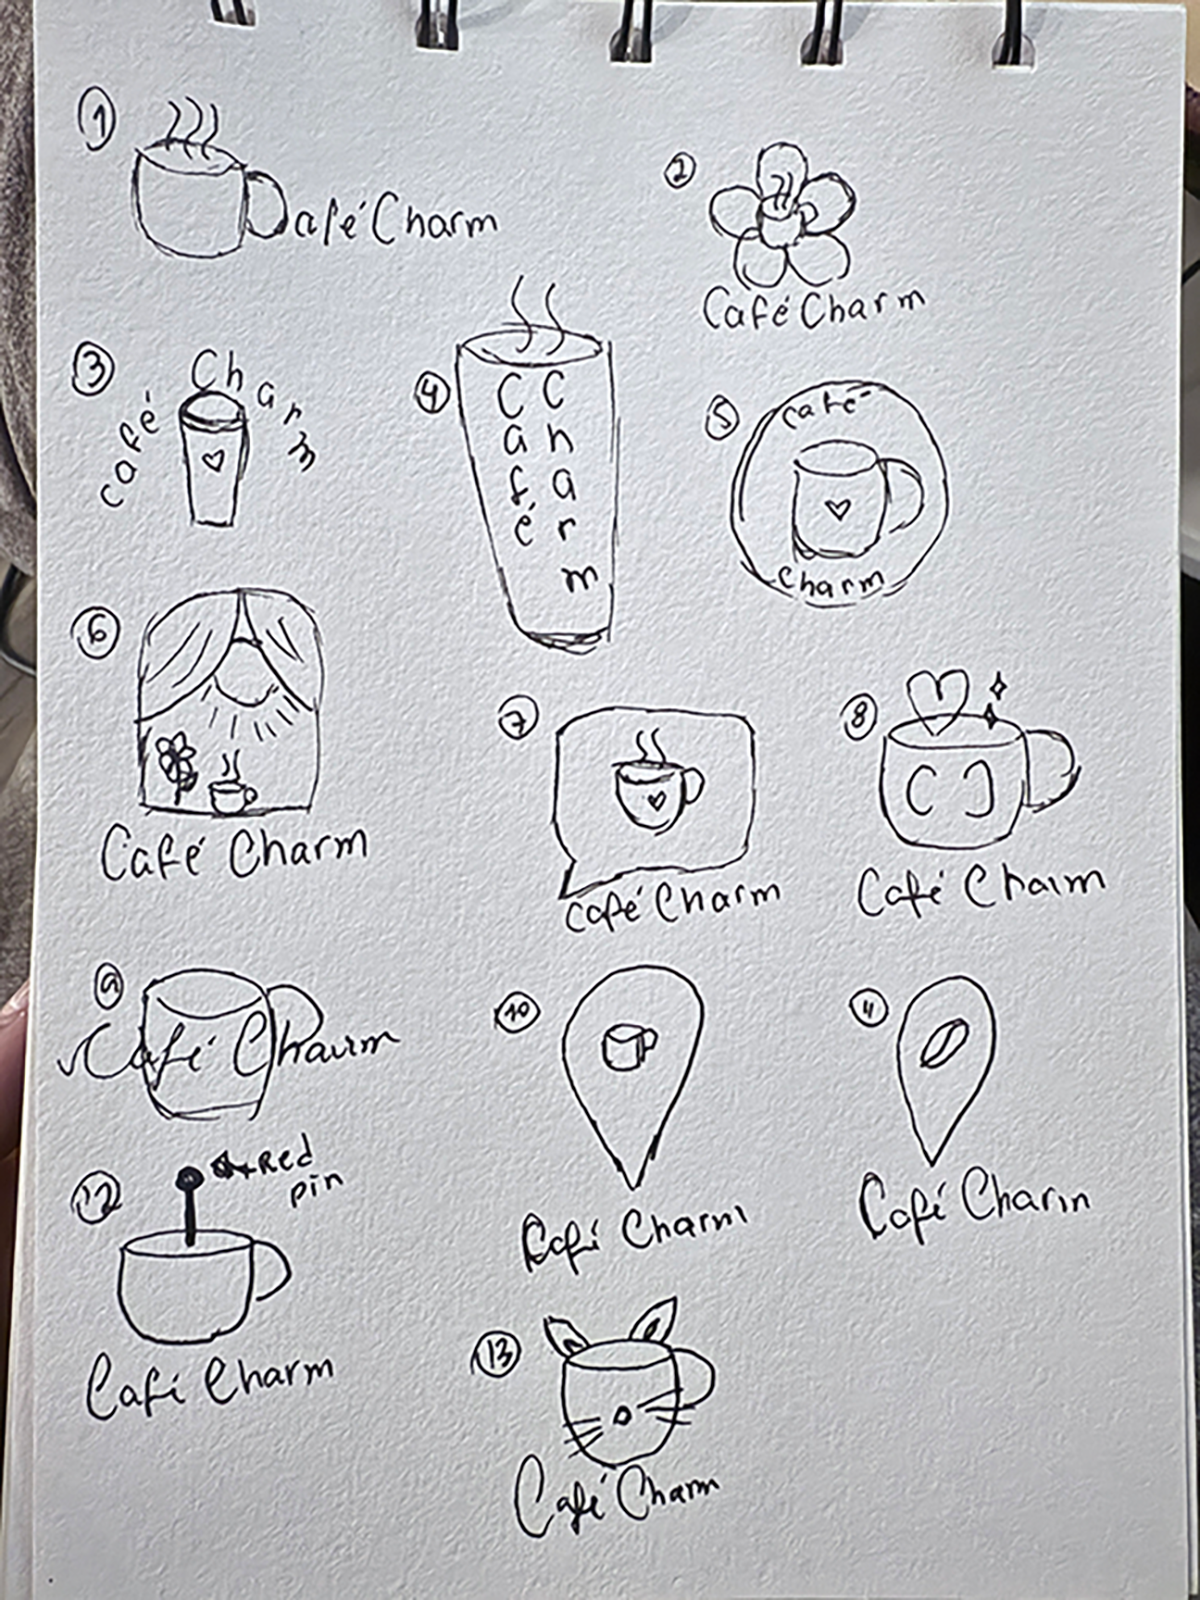 1
Café Charm
2
Café Charm
3
Café Charm
4
Café
Charm
5
Café
Charm
6
Café Charm
7
Café Charm
8
C C
Café Charm
9
Café Charm
10
Café Charm
11
Café Charm
12
Red
pin
Café Charm
13
Café Charm